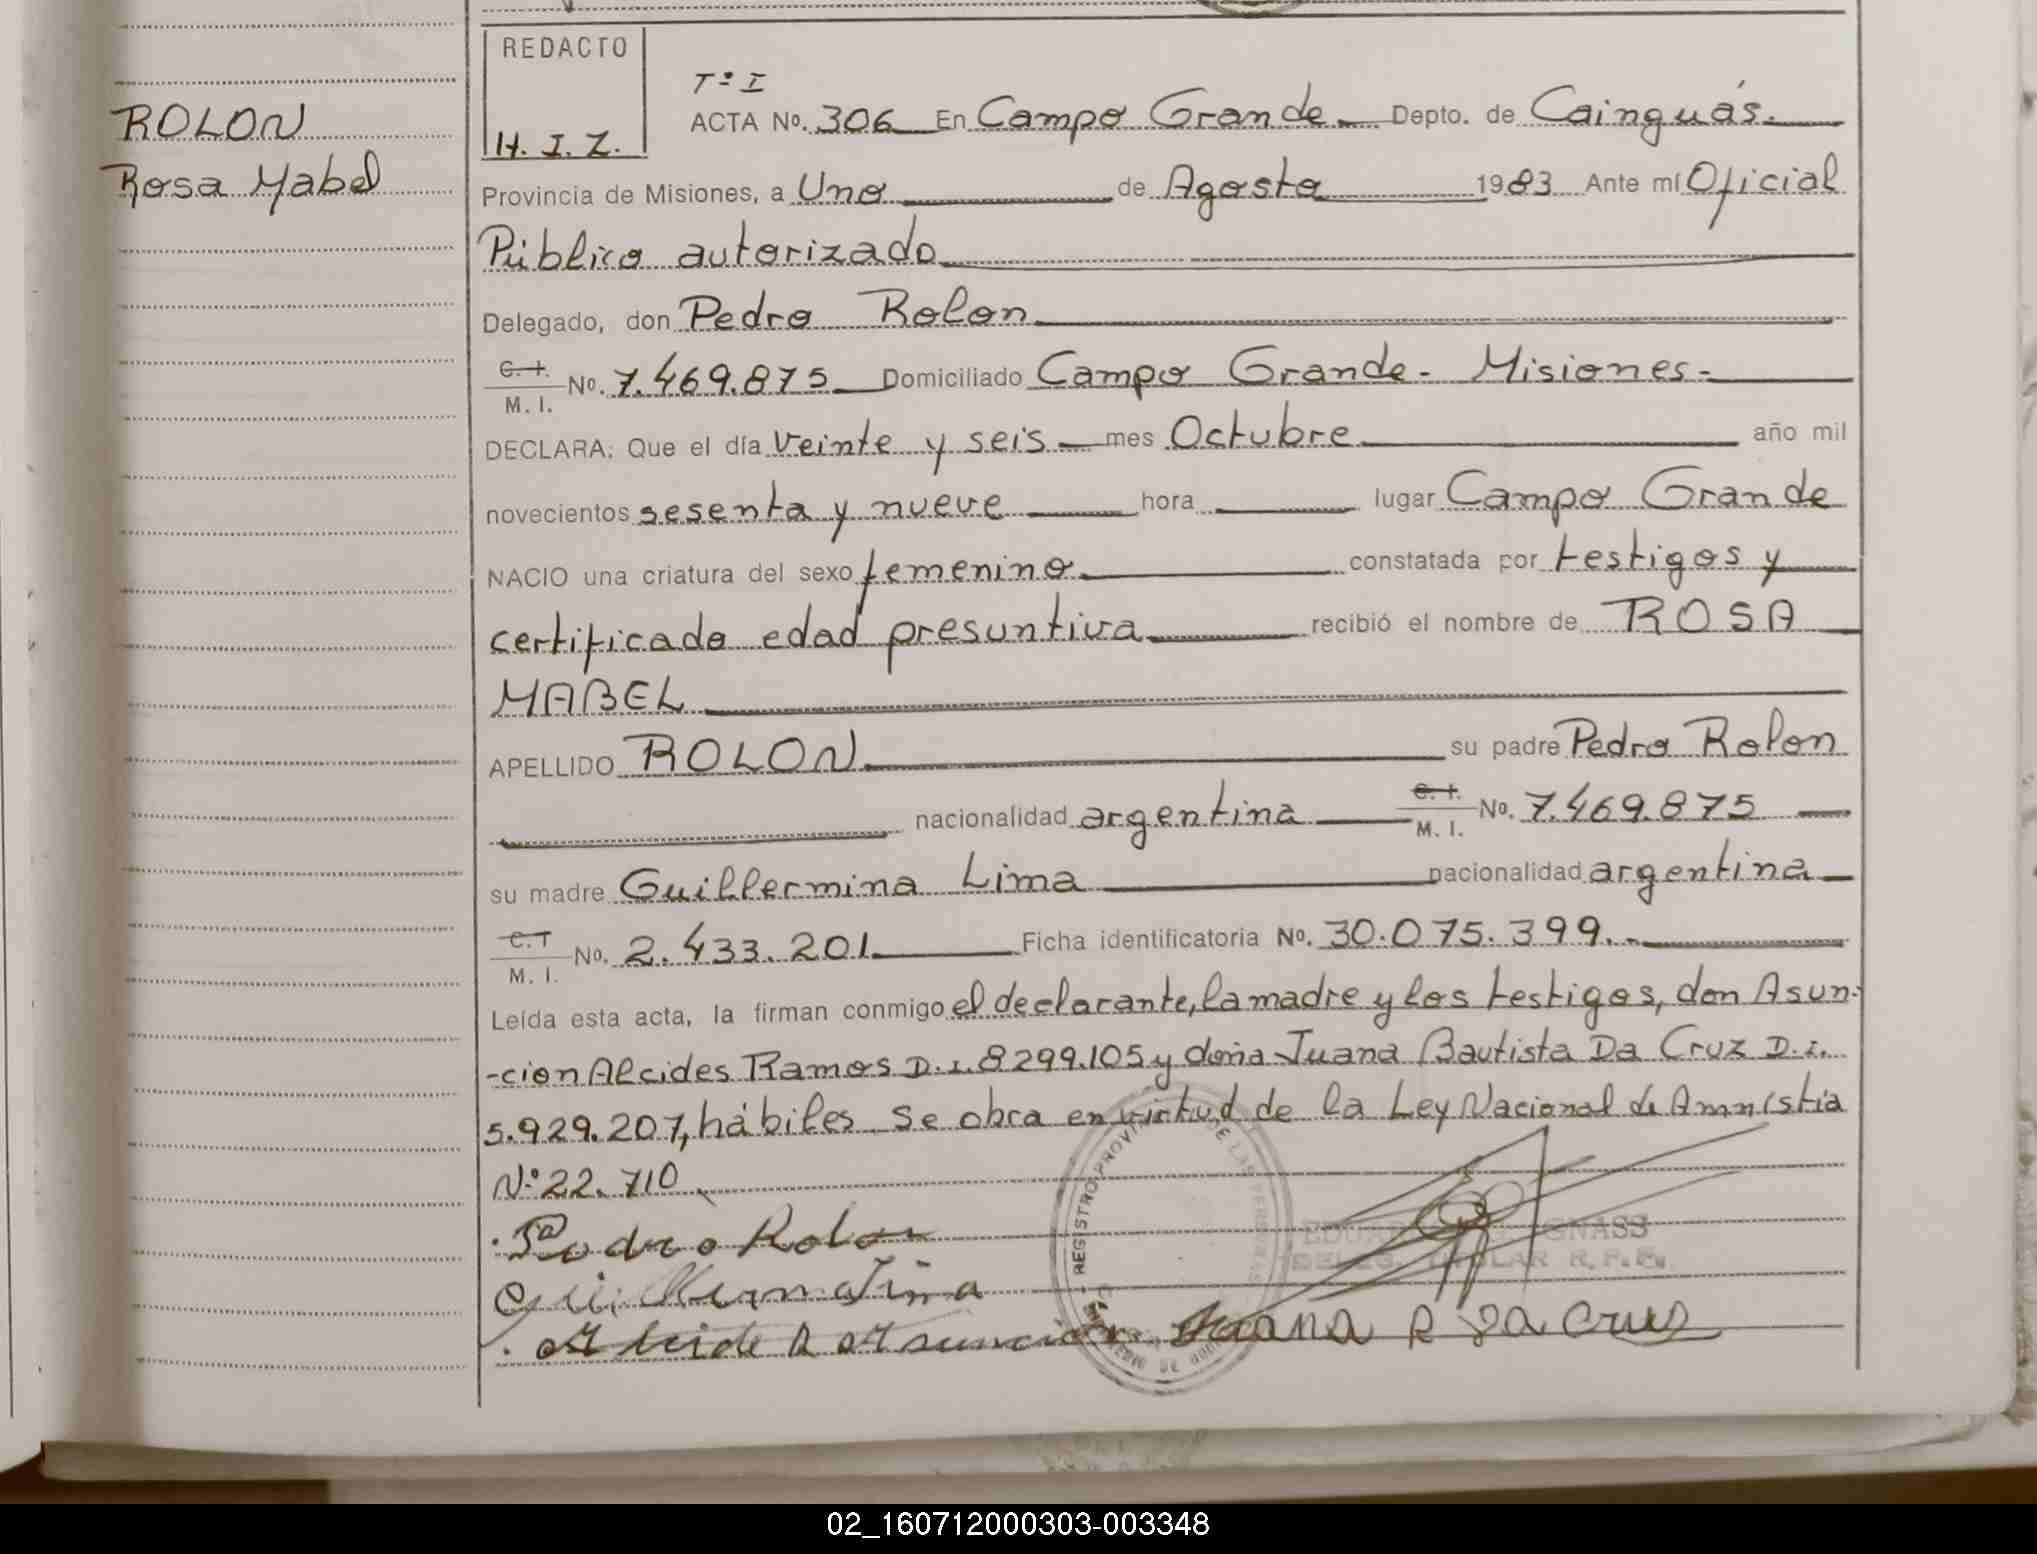 ROLON
Rosa Mabel
REDACTO
H. I. Z.
Tº I
ACTA No. 306 En Campo Grande Depto. de Cainguás.
Provincia de Misiones, a Uno de Agosto 1983 Ante mí Oficial
Público autorizado
Delegado, don Pedro Rolon
C. I. M. I. No. 7.469.875 Domiciliado Campo Grande - Misiones -
DECLARA: Que el día veinte y seis mes Octubre año mil
novecientos sesenta y nueve hora lugar Campo Grande
NACIO una criatura del sexo femenino constatada por testigos y
certificado edad presuntiva recibió el nombre de ROSA
MABEL
APELLIDO ROLON su padre Pedro Rolon
nacionalidad argentina C. I. M. I. No. 7.469.875
su madre Guillermina Lima nacionalidad argentina
C. I M. I. No. 2.433.201 Ficha identificatoria No. 30.075.399.-
Leída esta acta, la firman conmigo el declarante, la madre y los testigos, don Asun-
-cion Alcides Ramos D.I. 8299.105 y doña Juana Bautista Da Cruz D.I.
5.929.207, hábiles. Se obra en virtud de la Ley Nacional de Amnistía
Nº 22.710
Pedro Rolon
REGISTRO PROVI DE LAS PERSONAS
GNASS
R. P. P.
Juana B Da Cruz
02_160712000303-003348